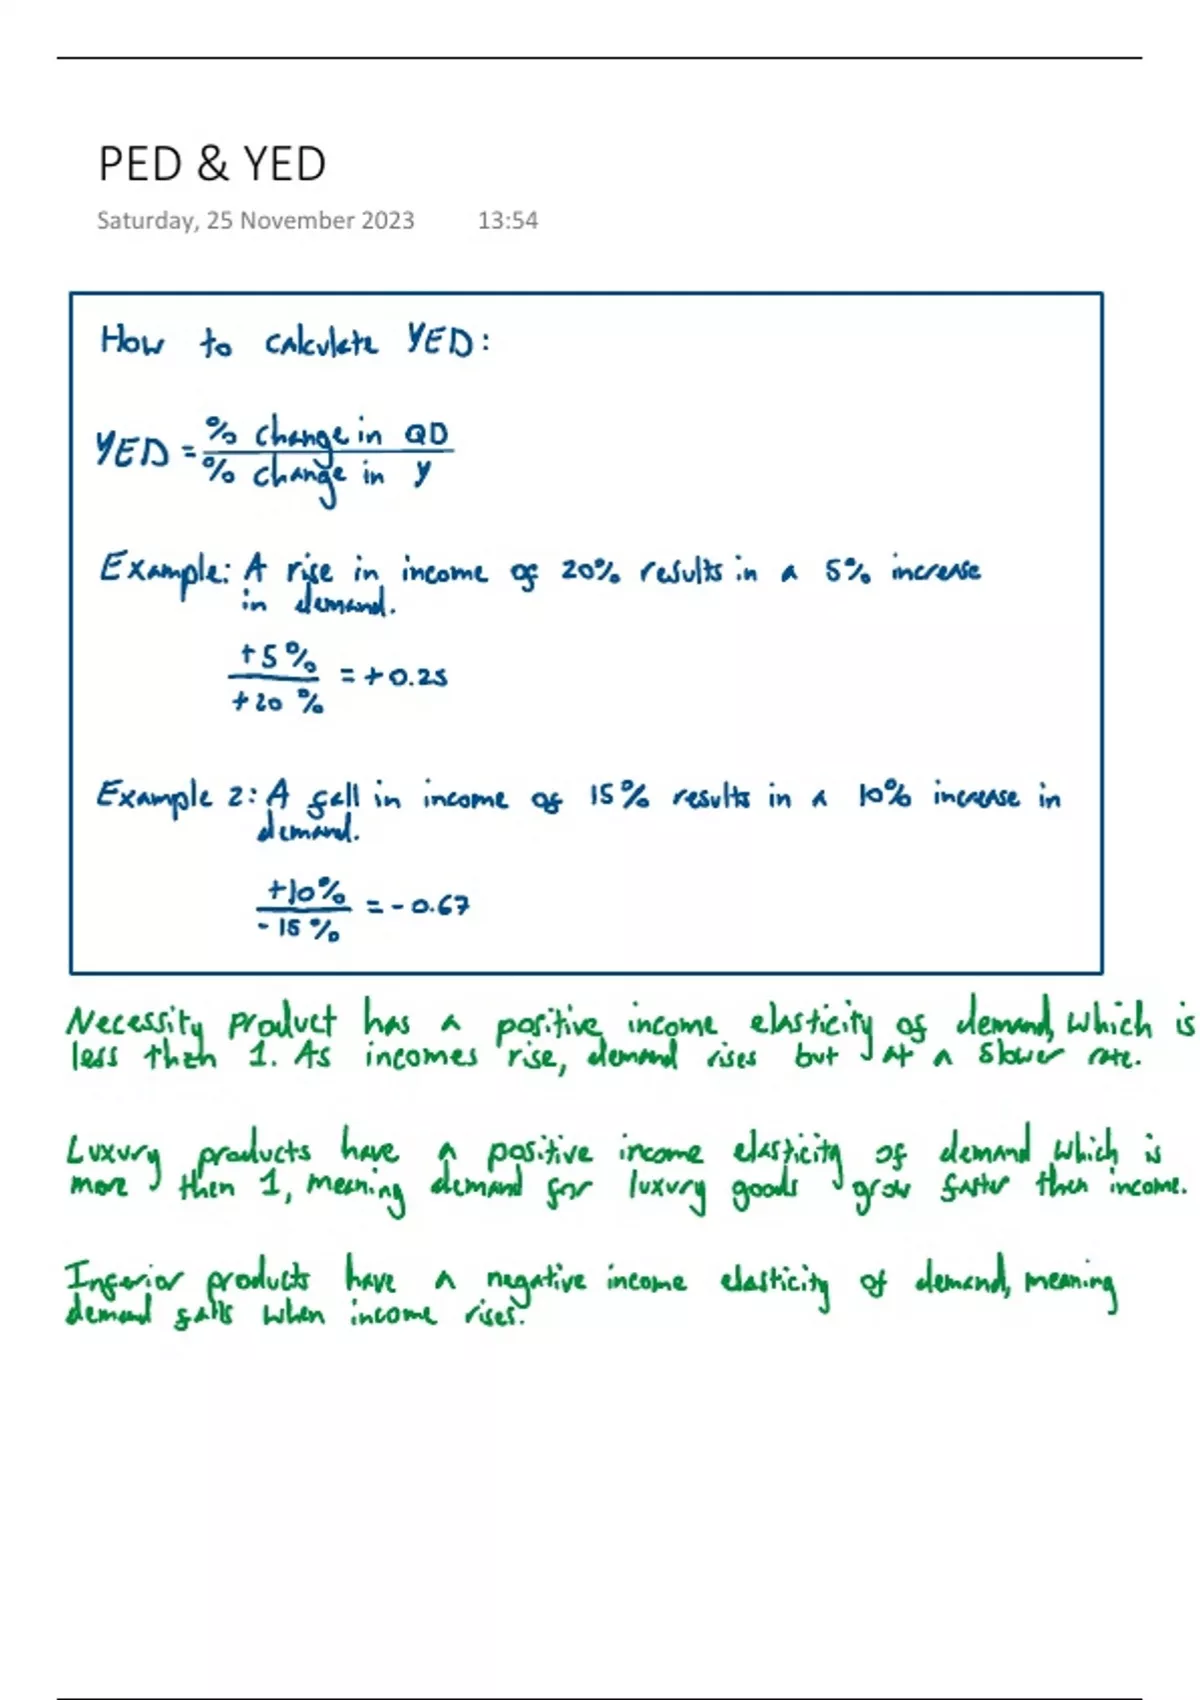 PED & YED
Saturday, 25 November 2023 13:54
How to calculate YED:
YED = % change in QD
% change in Y
Example: A rise in income of 20% results in a 5% increase
in demand.
+5%
= +0.25
+20 %
Example 2: A fall in income of 15% results in a 10% increase in
demand.
+10%
= -0.67
-15%
Necessity product has a positive income elasticity of demand, which is
less than 1. As incomes rise, demand rises but at a slower rate.
Luxury products have a positive income elasticity of demand which is
more then 1, meaning demand for luxury goods grow faster then income.
Inferior products have a negative income elasticity of demand, meaning
demand falls when income rises.